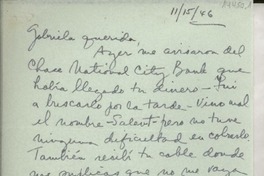 11/15/46
Gabriela querida,
Ayer me avisaron del
Chase National City Bank que
había llegado tu dinero - Fui
a buscarlo por la tarde - Vino mal
el nombre - Salent pero no tuve
ninguna dificultad en cobrarlo.
También recibí tu cable donde
me suplicas que no me vaya